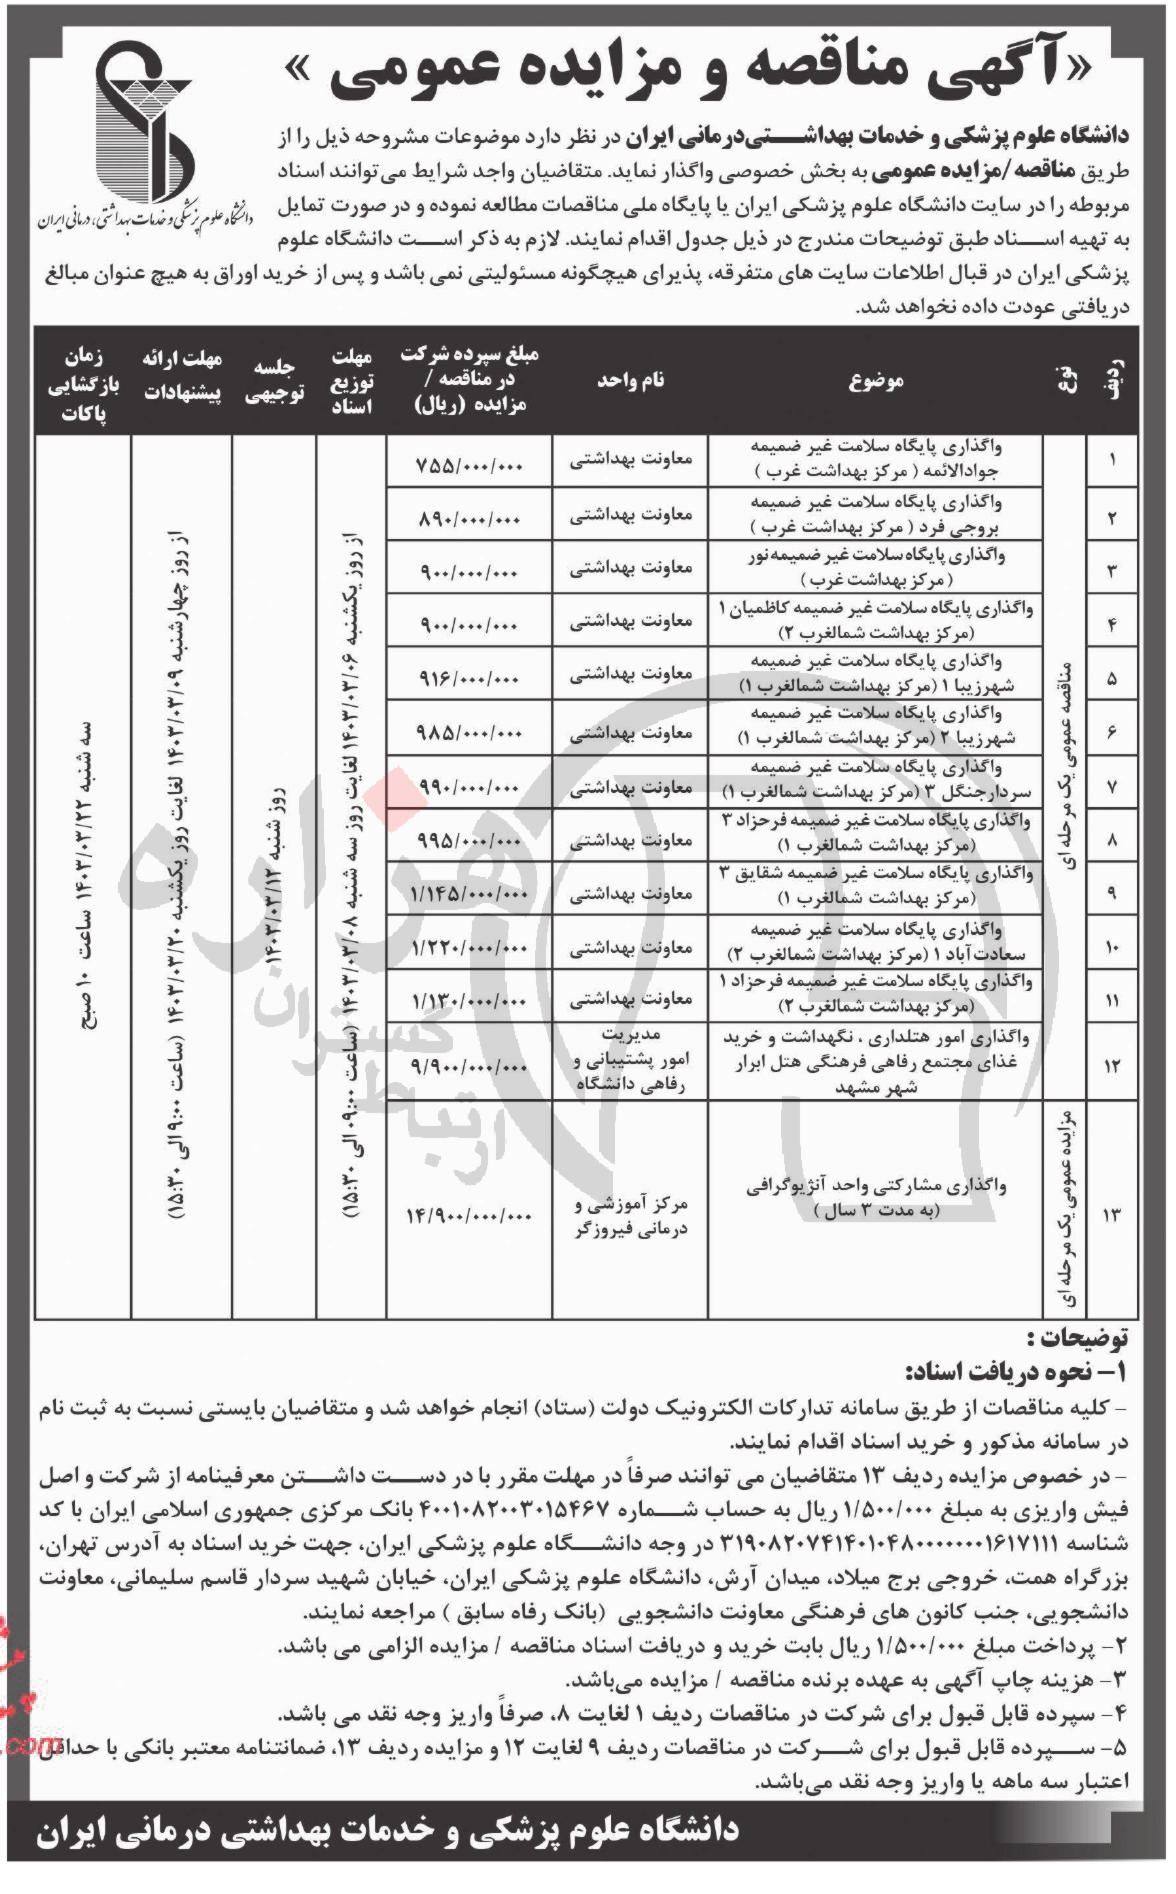 «آگهی مناقصه و مزایده عمومی »
دانشگاه علوم پزشکی و خدمات بهداشتی، درمانی ایران
دانشگاه علوم پزشکی و خدمات بهداشــــتی‌درمانی ایران در نظر دارد موضوعات مشروحه ذیل را از
طریق مناقصه/مزایده عمومی به بخش خصوصی واگذار نماید. متقاضیان واجد شرایط می‌توانند اسناد
مربوطه را در سایت دانشگاه علوم پزشکی ایران یا پایگاه ملی مناقصات مطالعه نموده و در صورت تمایل
به تهیه اسـناد طبق توضیحات مندرج در ذیل جدول اقدام نمایند. لازم به ذکر اســت دانشگاه علوم
پزشکی ایران در قبال اطلاعات سایت های متفرقه، پذیرای هیچگونه مسئولیتی نمی باشد و پس از خرید اوراق به هیچ عنوان مبالغ
دریافتی عودت داده نخواهد شد.
ردیف
نوع
موضوع
نام واحد
مبلغ سپرده شرکت
در مناقصه /
مزایده (ریال)
مهلت
توزیع
اسناد
جلسه
توجیهی
مهلت ارائه
پیشنهادات
زمان
بازگشایی
پاکات
مناقصه عمومی یک مرحله ای
۱
واگذاری پایگاه سلامت غیر ضمیمه
جوادالائمه ( مرکز بهداشت غرب )
معاونت بهداشتی
۷۵۵/۰۰۰/۰۰۰
۲
واگذاری پایگاه سلامت غیر ضمیمه
بروجی فرد ( مرکز بهداشت غرب )
معاونت بهداشتی
۸۹۰/۰۰۰/۰۰۰
۳
واگذاری پایگاه سلامت غیر ضمیمه نور
( مرکز بهداشت غرب )
معاونت بهداشتی
۹۰۰/۰۰۰/۰۰۰
۴
واگذاری پایگاه سلامت غیر ضمیمه کاظمیان ۱
(مرکز بهداشت شمالغرب ۲)
معاونت بهداشتی
۹۰۰/۰۰۰/۰۰۰
۵
واگذاری پایگاه سلامت غیر ضمیمه
شهرزیبا ۱ (مرکز بهداشت شمالغرب ۱)
معاونت بهداشتی
۹۱۶/۰۰۰/۰۰۰
۶
واگذاری پایگاه سلامت غیر ضمیمه
شهرزیبا ۲ (مرکز بهداشت شمالغرب ۱)
معاونت بهداشتی
۹۸۵/۰۰۰/۰۰۰
۷
واگذاری پایگاه سلامت غیر ضمیمه
سردارجنگل ۳ (مرکز بهداشت شمالغرب ۱)
معاونت بهداشتی
۹۹۰/۰۰۰/۰۰۰
۸
واگذاری پایگاه سلامت غیر ضمیمه فرحزاد ۳
(مرکز بهداشت شمالغرب ۱)
معاونت بهداشتی
۹۹۵/۰۰۰/۰۰۰
۹
واگذاری پایگاه سلامت غیر ضمیمه شقایق ۳
(مرکز بهداشت شمالغرب ۱)
معاونت بهداشتی
۱/۱۴۵/۰۰۰/۰۰۰
۱۰
واگذاری پایگاه سلامت غیر ضمیمه
سعادت‌آباد ۱ (مرکز بهداشت شمالغرب ۲)
معاونت بهداشتی
۱/۲۲۰/۰۰۰/۰۰۰
۱۱
واگذاری پایگاه سلامت غیر ضمیمه فرحزاد ۱
(مرکز بهداشت شمالغرب ۲)
معاونت بهداشتی
۱/۱۳۰/۰۰۰/۰۰۰
۱۲
واگذاری امور هتلداری ، نگهداشت و خرید
غذای مجتمع رفاهی فرهنگی هتل ابرار
شهر مشهد
مدیریت
امور پشتیبانی و
رفاهی دانشگاه
۹/۹۰۰/۰۰۰/۰۰۰
مزایده عمومی یک مرحله ای
۱۳
واگذاری مشارکتی واحد آنژیوگرافی
(به مدت ۳ سال )
مرکز آموزشی و
درمانی فیروزگر
۱۴/۹۰۰/۰۰۰/۰۰۰
از روز یکشنبه ۱۴۰۳/۰۳/۰۶ لغایت روز سه شنبه ۱۴۰۳/۰۳/۰۸ (ساعت ۰۹:۰۰ الی ۱۵:۳۰)
روز شنبه ۱۴۰۳/۰۳/۱۲
از روز چهارشنبه ۱۴۰۳/۰۳/۰۹ لغایت روز یکشنبه ۱۴۰۳/۰۳/۲۰ (ساعت ۹:۰۰ الی ۱۵:۳۰)
سه شنبه ۱۴۰۳/۰۳/۲۲ ساعت ۱۰ صبح
هزاره
ارتباط گستران
توضیحات :
۱- نحوه دریافت اسناد:
- کلیه مناقصات از طریق سامانه تدارکات الکترونیک دولت (ستاد) انجام خواهد شد و متقاضیان بایستی نسبت به ثبت نام
در سامانه مذکور و خرید اسناد اقدام نمایند.
- در خصوص مزایده ردیف ۱۳ متقاضیان می توانند صرفاً در مهلت مقرر با در دســت داشــتن معرفینامه از شرکت و اصل
فیش واریزی به مبلغ ۱/۵۰۰/۰۰۰ ریال به حساب شــماره ۴۰۰۱۰۸۲۰۰۳۰۱۵۴۶۷ بانک مرکزی جمهوری اسلامی ایران با کد
شناسه ۳۱۹۰۸۲۰۷۴۱۴۰۱۰۴۸۰۰۰۰۰۰۰۱۶۱۷۱۱۱ در وجه دانشــگاه علوم پزشکی ایران، جهت خرید اسناد به آدرس تهران،
بزرگراه همت، خروجی برج میلاد، میدان آرش، دانشگاه علوم پزشکی ایران، خیابان شهید سردار قاسم سلیمانی، معاونت
دانشجویی، جنب کانون های فرهنگی معاونت دانشجویی (بانک رفاه سابق ) مراجعه نمایند.
۲- پرداخت مبلغ ۱/۵۰۰/۰۰۰ ریال بابت خرید و دریافت اسناد مناقصه / مزایده الزامی می باشد.
۳- هزینه چاپ آگهی به عهده برنده مناقصه / مزایده می‌باشد.
۴- سپرده قابل قبول برای شرکت در مناقصات ردیف ۱ لغایت ۸، صرفاً واریز وجه نقد می باشد.
۵- ســپرده قابل قبول برای شــرکت در مناقصات ردیف ۹ لغایت ۱۲ و مزایده ردیف ۱۳، ضمانتنامه معتبر بانکی با حداقل
اعتبار سه ماهه یا واریز وجه نقد می‌باشد.
.com
دانشگاه علوم پزشکی و خدمات بهداشتی درمانی ایران